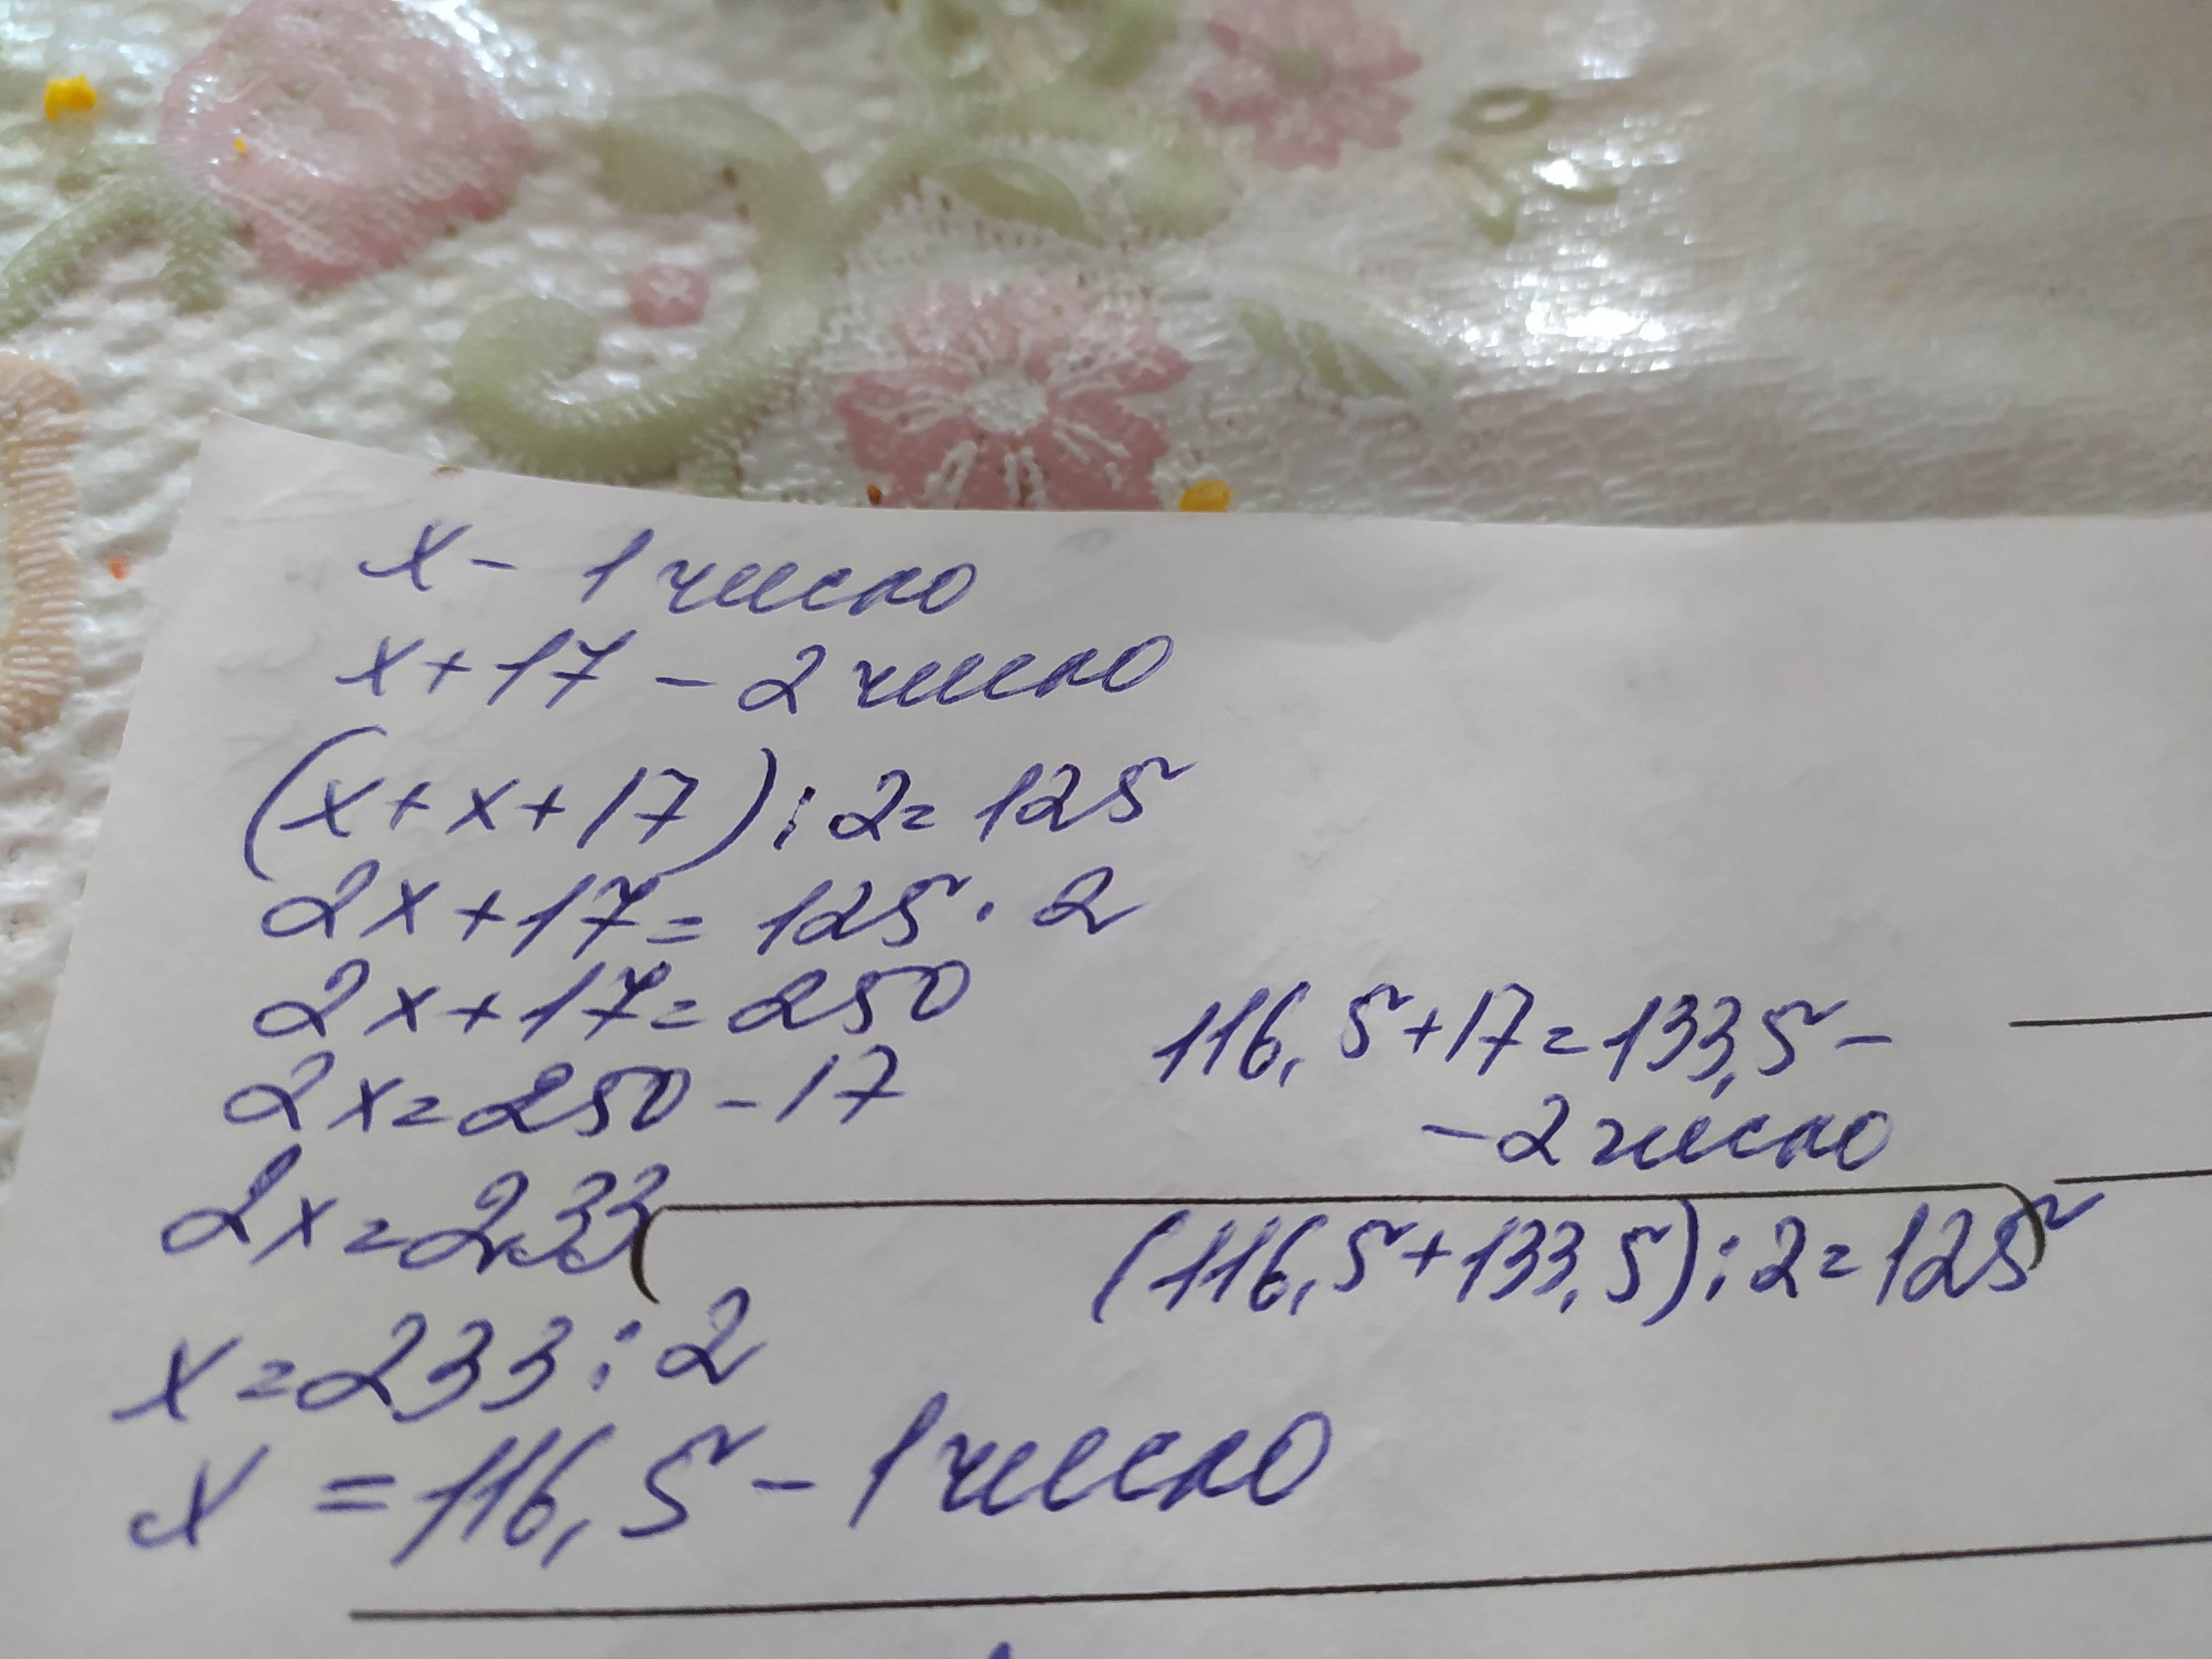 x - 1 число
x + 17 - 2 число
(x + x + 17) : 2 = 125
2x + 17 = 125 · 2
2x + 17 = 250
2x = 250 - 17
2x = 233
x = 233 : 2
x = 116,5 - 1 число
116,5 + 17 = 133,5 -
- 2 число
(116,5 + 133,5) : 2 = 125